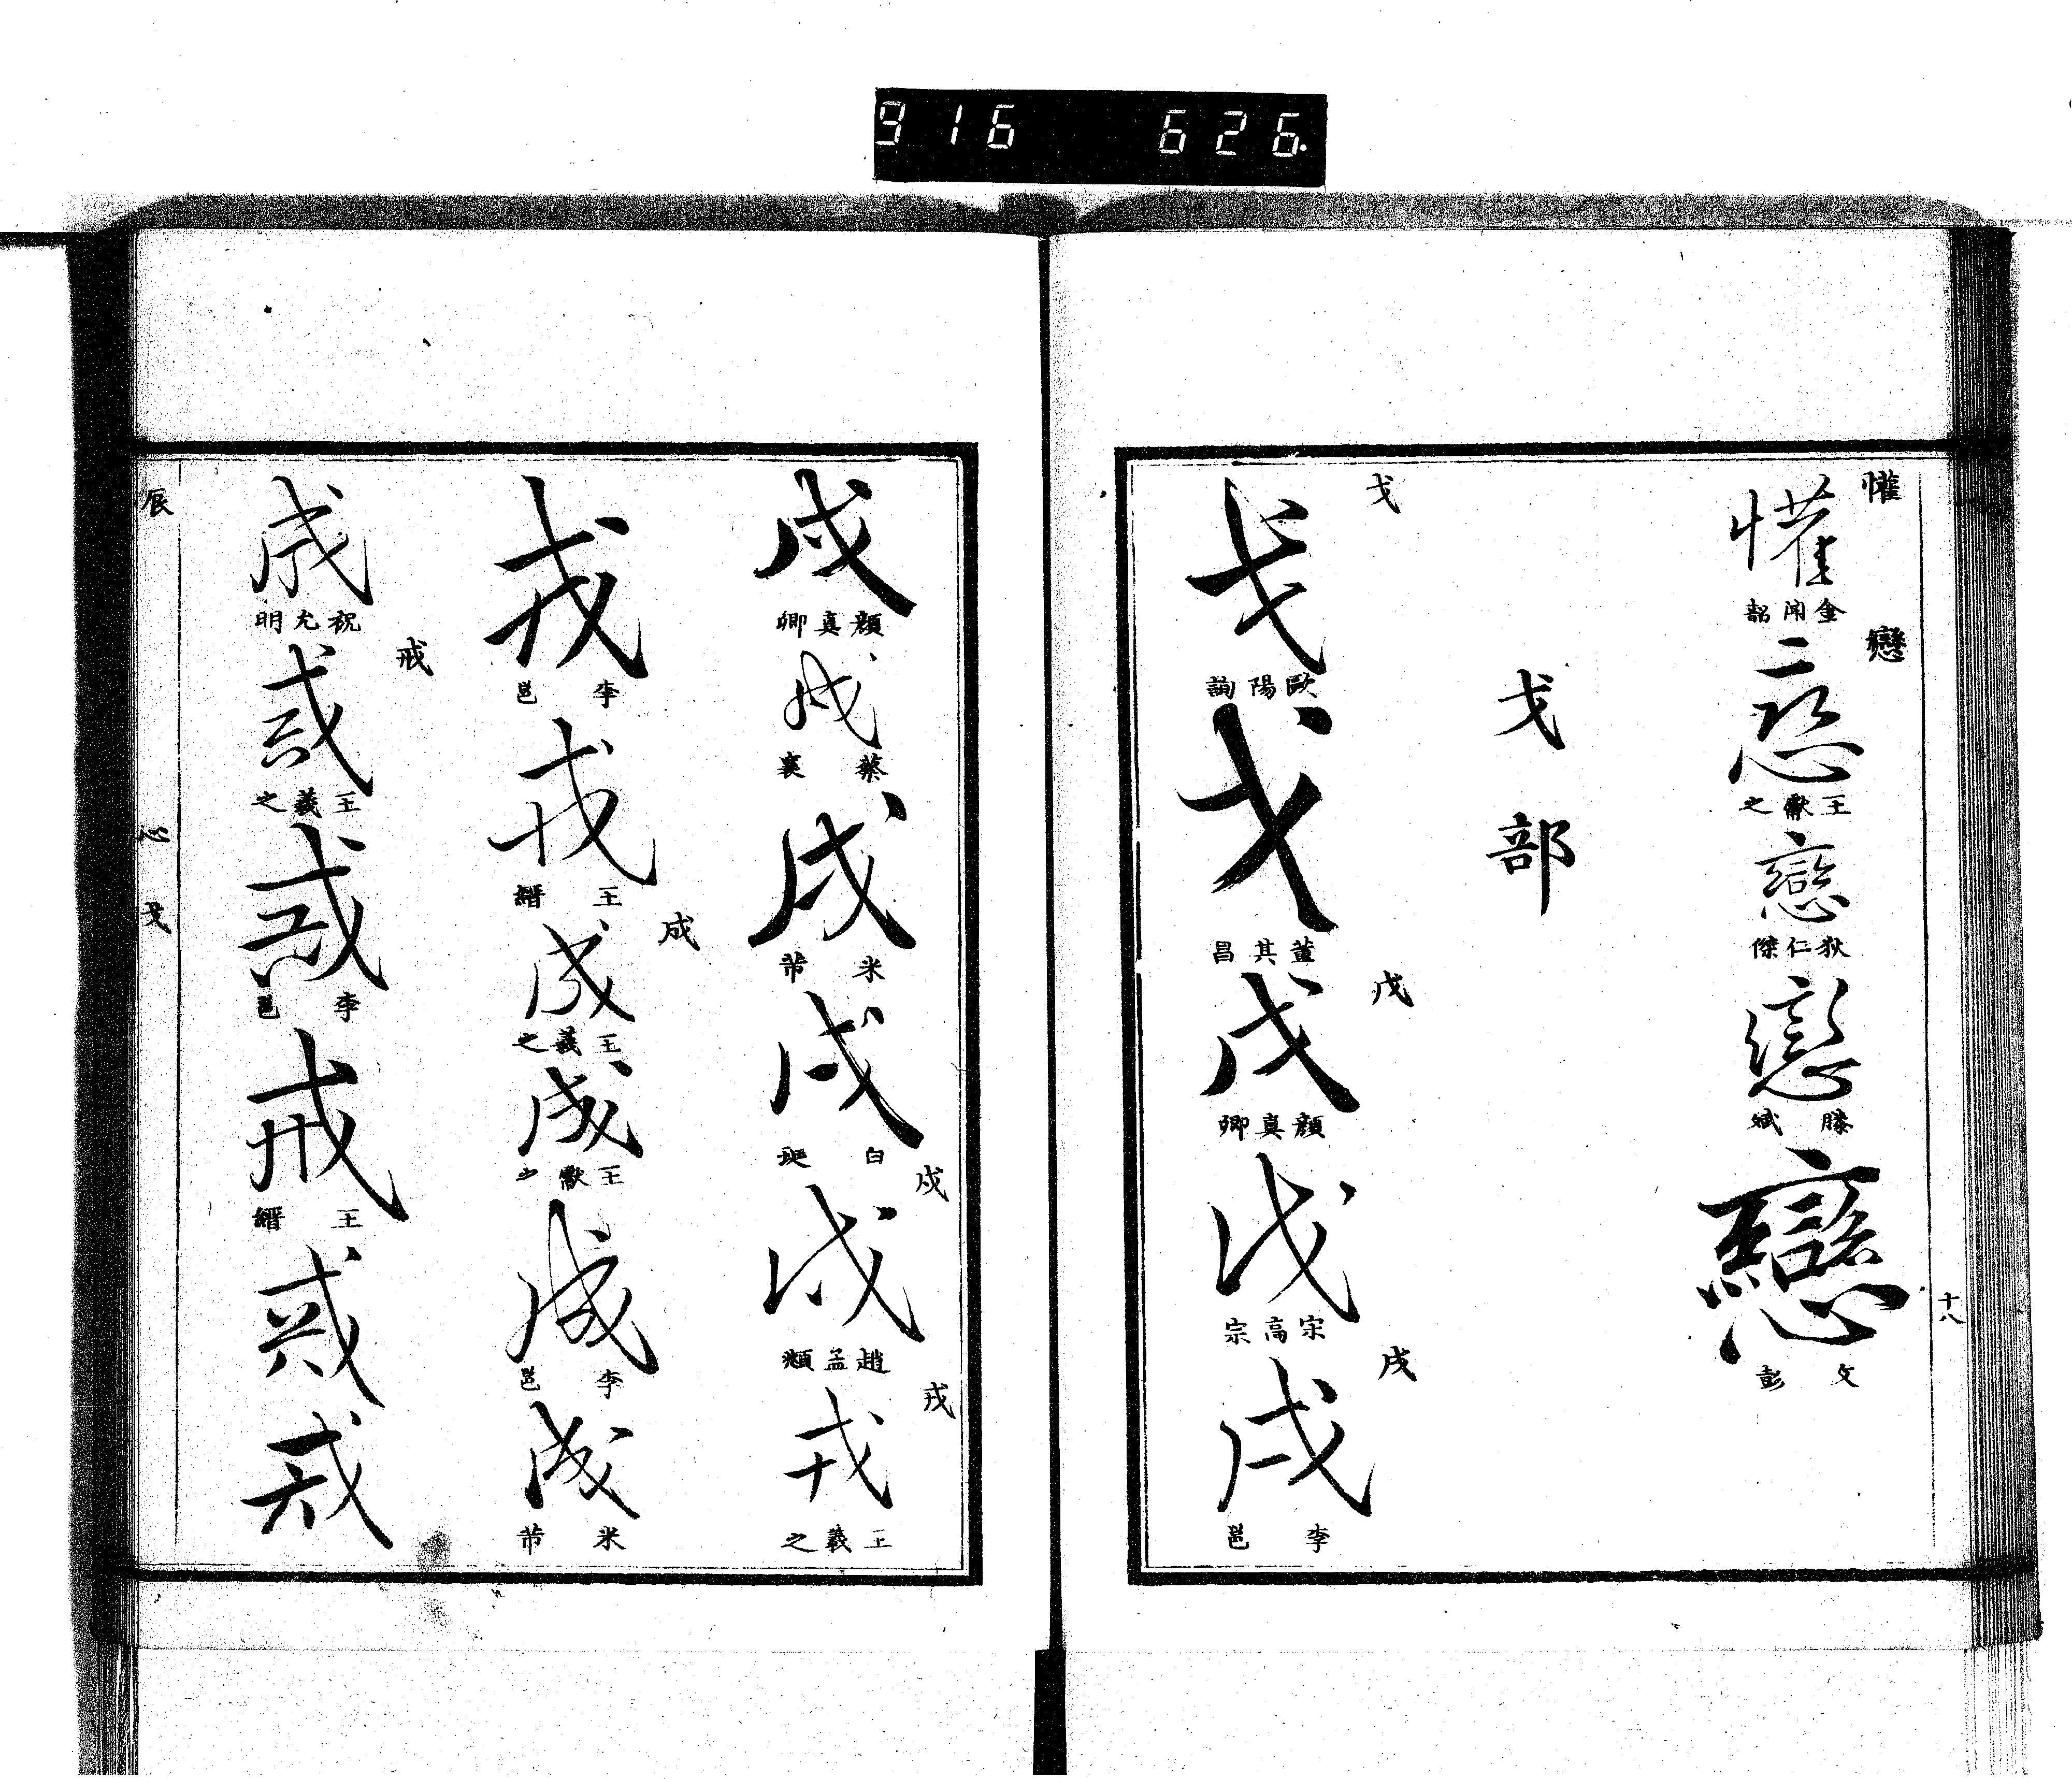 916 626.
十八
懽
懽
金開韶
戀
戀
王獻之
戀
狄仁傑
戀
滕斌
戀
文彭
戈部
戈
戈
歐陽詢
戈
董其昌
戊
戊
顏真卿
戊
宋高宗
戌
戌
李邕
戌
顏真卿
戌
蔡襄
戌
米芾
戌
白珽
戍
戍
趙孟頫
戎
戎
王羲之
戎
李邕
戎
王縉
成
成
王羲之
成
王獻之
成
李邕
成
米芾
成
祝允明
戒
戒
王羲之
戒
李邕
戒
王縉
戒
戒
辰 心 戈